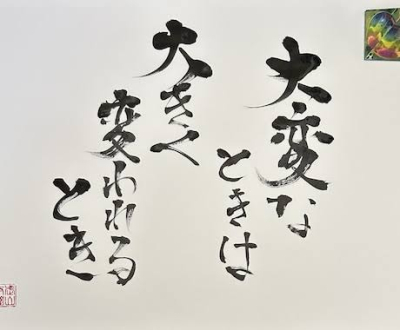 大変な
ときは
大きく
変われる
とき